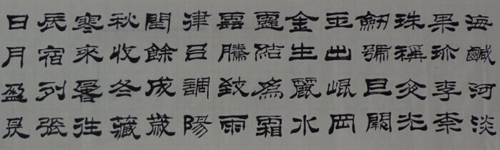 日月盈昃
辰宿列張
寒來暑往
秋收冬藏
閏餘成歲
律呂調陽
雲騰致雨
露結為霜
金生麗水
玉出崐岡
劒號巨闕
珠稱夜光
果珍李柰
海鹹河淡